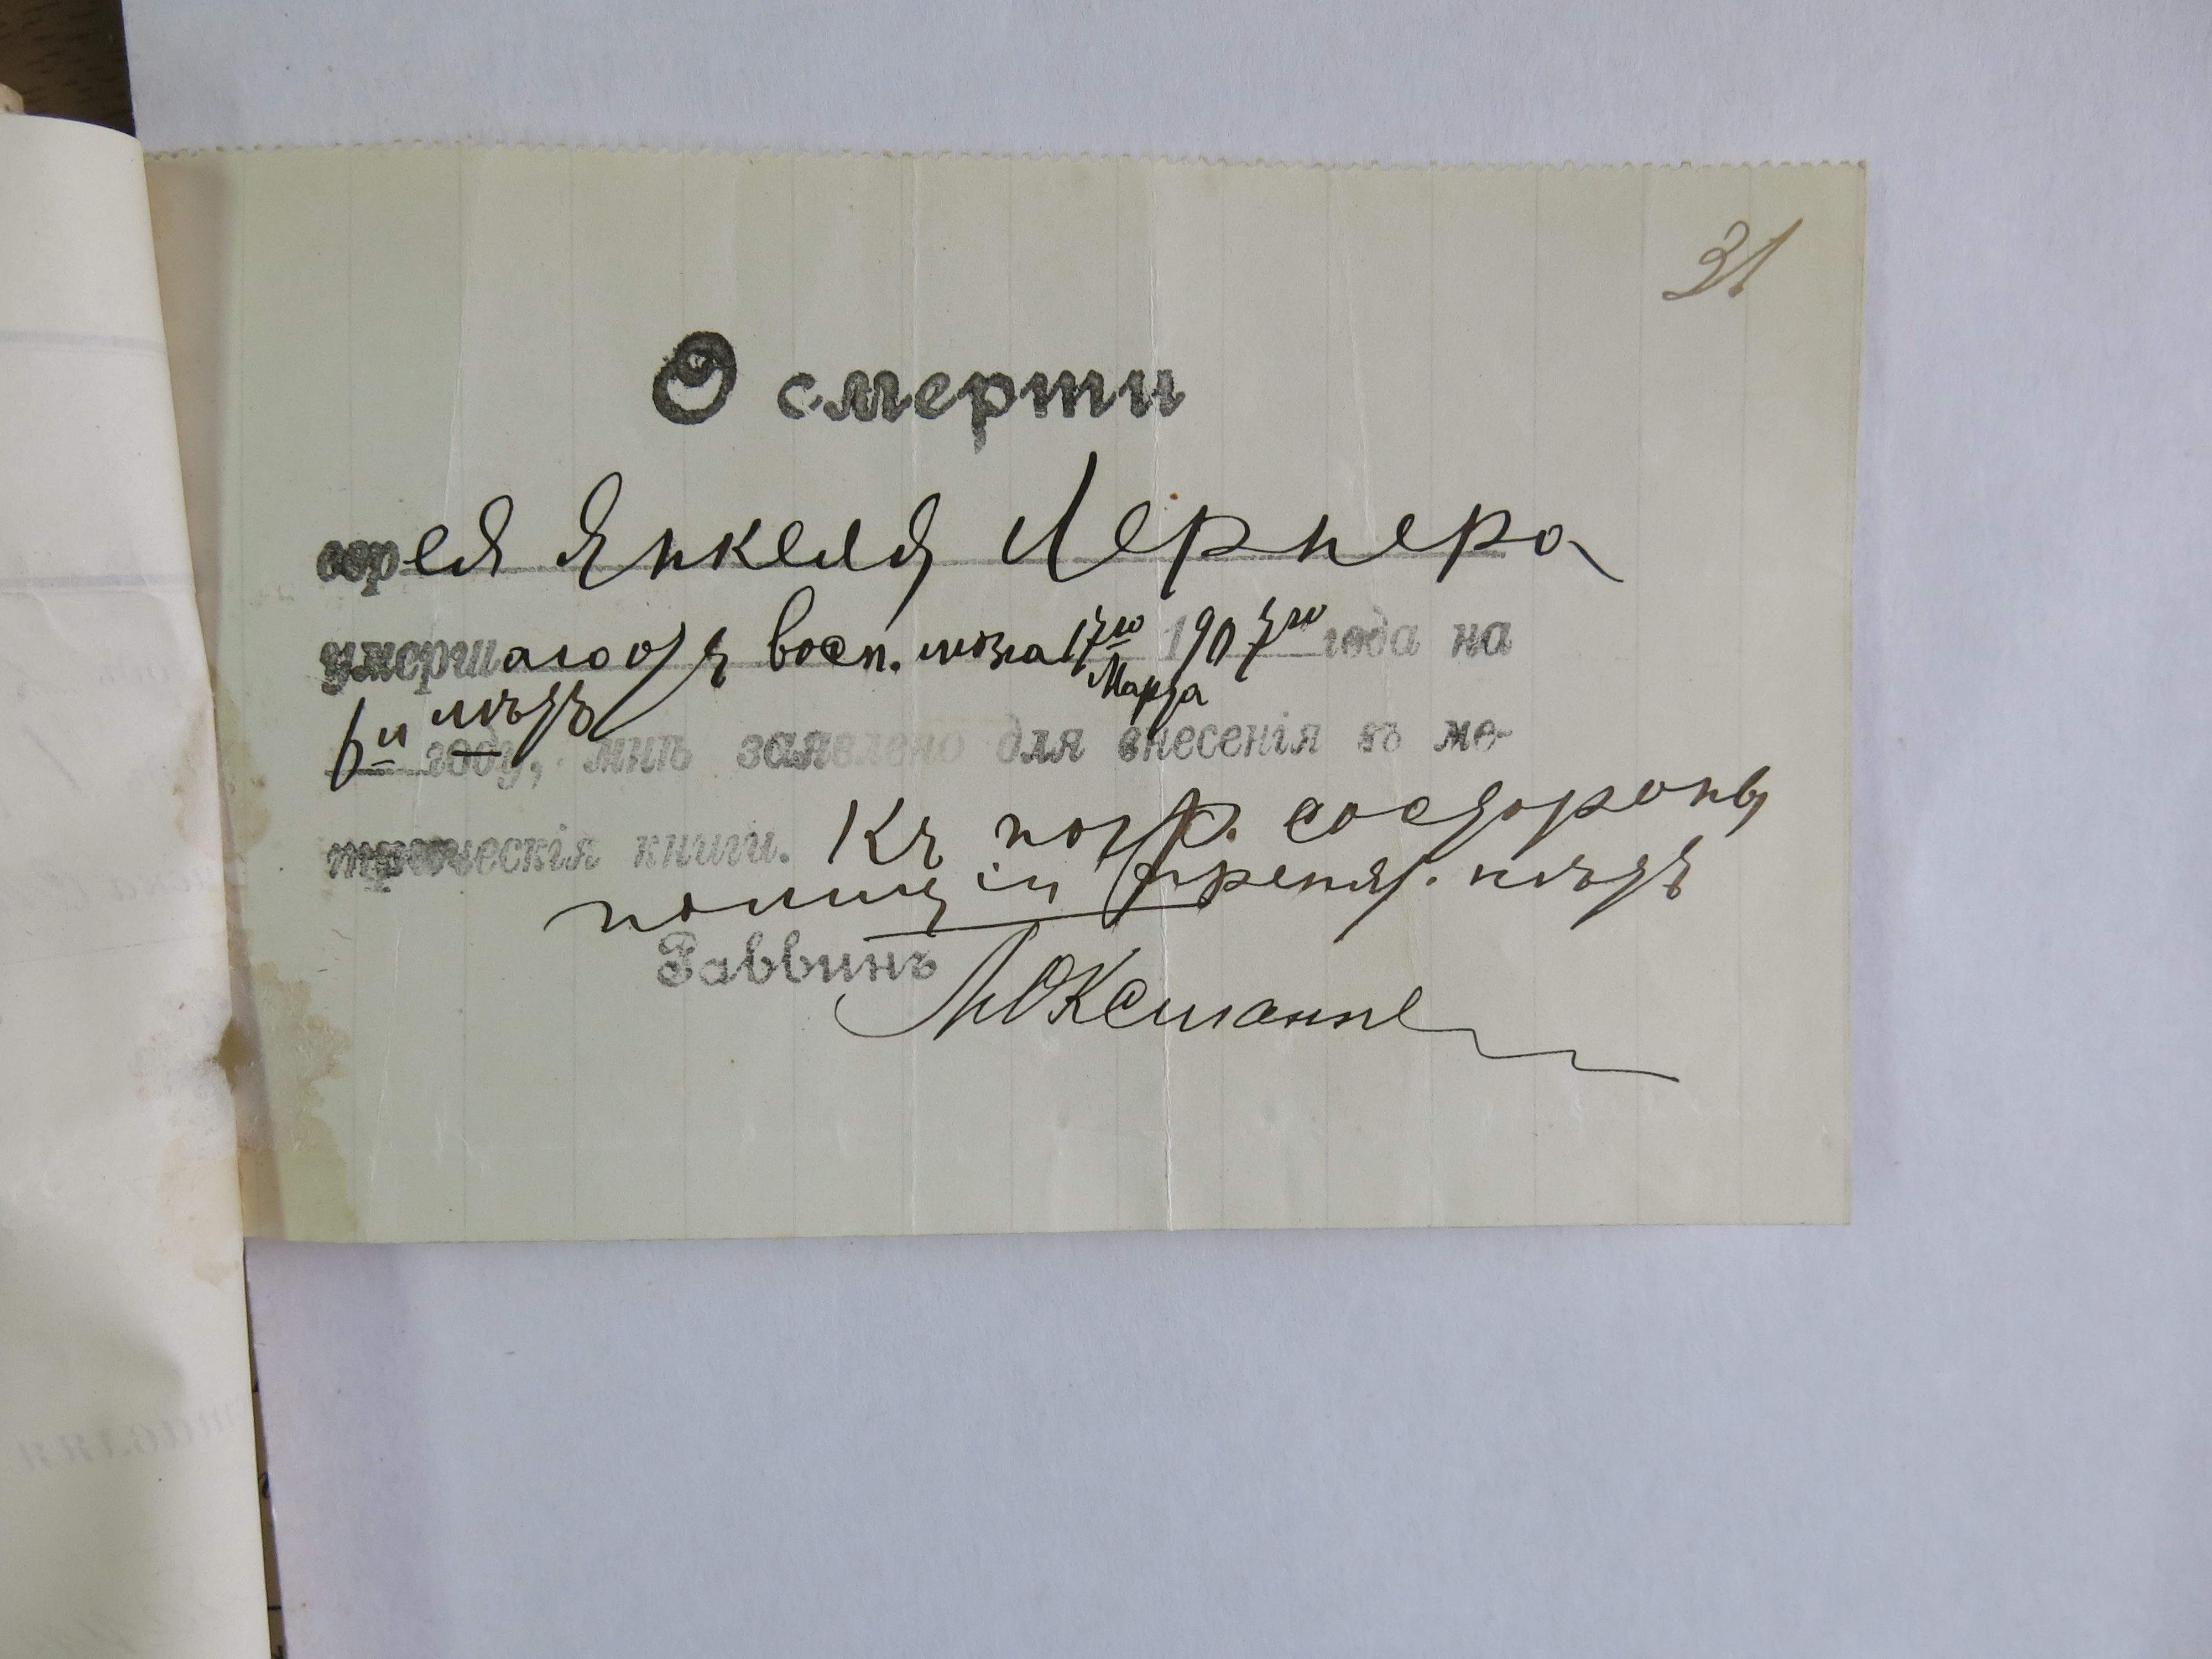 31
О смерти
еврея Янкеля Лернера
умершаго отъ восп. мозга 17го 1907го года на
Марта
6м мѣстѣ
году, мнѣ заявлено для внесенія въ ме-
трическія книги. Къ погр. со стороны
полиціи препят. нѣтъ
Раввинъ